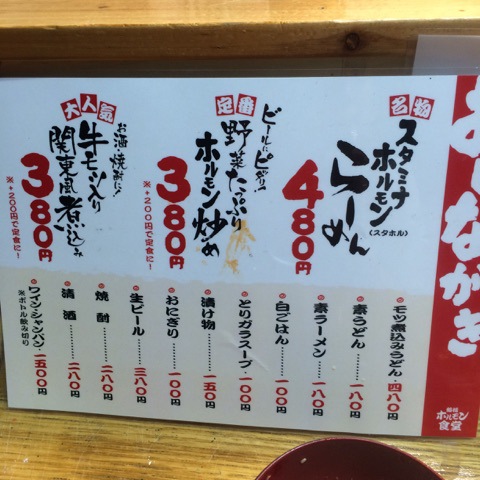 おしながき
名物
スタミナ
ホルモン
らーめん
(スタホル)
480円
定番
ビールにピッタリ!
野菜たっぷり
ホルモン炒め
380円
※+200円で定食に!
大人気
お酒・焼酎に!
牛モツ入り
関東風煮込み
380円
※+200円で定食に!
モツ煮込みうどん・四八〇円
素うどん……一八〇円
素ラーメン……一八〇円
白ごはん……一〇〇円
とりガラスープ・一〇〇円
漬け物……一五〇円
おにぎり……一〇〇円
生ビール……三八〇円
焼酎……二八〇円
清酒……二八〇円
ワイン・シャンパン・一五〇〇円
※ボトル飲み切り
ホルモン
食堂